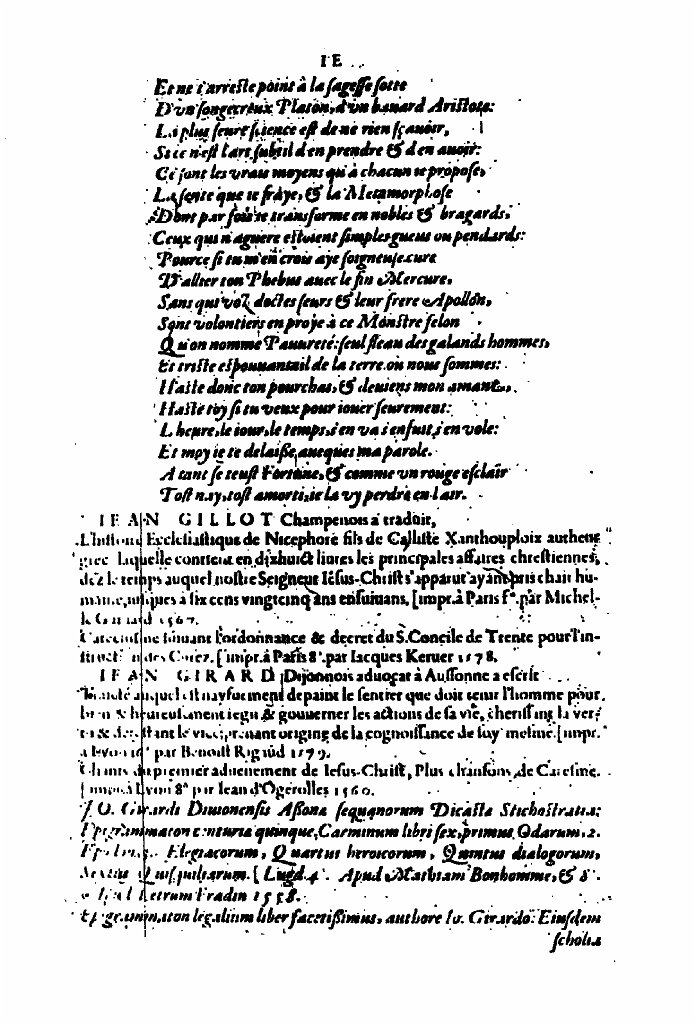 IE
Et ne t'arreste point à la sagesse sotte
D'vn songecreux Platon, d'vn bauard Aristote:
La plus seure science est de ne rien sçauoir,
Si ce n'est l'art subtil d'en prendre & d'en auoir:
Ce sont les vrais moyens qu'à chacun ie propose,
La sente que ie fraye, & la Metamorphose
Dont par fois ie transforme en nobles & bragards,
Ceux qui n'aguere estoient simples gueus ou pendards:
Pource si tu m'en crois aye soigneuse cure
D'allier ton Phebus auec le fin Mercure,
Sans qui voz doctes seurs & leur frere Apollon,
Sont volontiers en proye à ce Monstre felon
Qu'on nomme Pauureté: seul fleau des galands hommes,
Et triste espouuantail de la terre où nous sommes:
Haste donc ton pourchas, & deuiens mon amant,
Haste toy si tu veux pour iouer seurement:
L'heure, le iour, le temps, s'en va s'enfuit, s'en vole:
Et moy ie te delaisse, auecques ma parole.
A tant se teust Fortune, & comme vn rouge esclair
Tost nay, tost amorti, ie la vy perdre en l'air.
IEAN GILLOT Champenois a traduit,
L'histoire Ecclesiastique de Nicephore fils de Calliste Xanthouploix autheur
grec laquelle contient en dixhuict liures les principales affaires chrestiennes,
dez le temps auquel nostre Seigneur Iesus-Christ s'apparut ayant pris chair hu-
maine, iusques à six cens vingtcinq ans ensuiuans, [impr. à Paris f°. par Michel
1567.
Catechisme suiuant l'ordonnance & decret du S. Concile de Trente pour l'in-
struction des Curez. [impr. à Paris 8°. par Iacques Keruer 1578.
IEAN GIRARD Dijonnois aduocat à Aussonne a escrit
Traicté auquel est nayfuement depaint le sentier que doit tenir l'homme pour
bien & heureusement regir & gouuerner les actions de sa vie, cherissant la ver-
tu & detestant le vice, prenant origine de la cognoissance de soy mesme. [impr.
à Lyon 16° par Benoist Rigaud 1579.
Chants du premier aduenement de Iesus-Christ, Plus chansons de Caresme.
[impr. à Lyon 8° par Iean d'Ogerolles 1560.
IO. Girardi Diuionensis Assonæ sequanorum Dicastæ Stichostratia:
Epigrammaton centuriæ quinque, Carminum libri sex, primus Odarum, 2.
Elegiacorum, Quartus heroicorum, Quintus dialogorum,
Sextus Quisquiliarum. [Lugd. 4°. Apud Mathiam Bonhomme, & 8°.
Petrum Fradin 1558.
Epigrammaton legalium liber facetissimus, authore Io. Girardo. Eiusdem
scholia